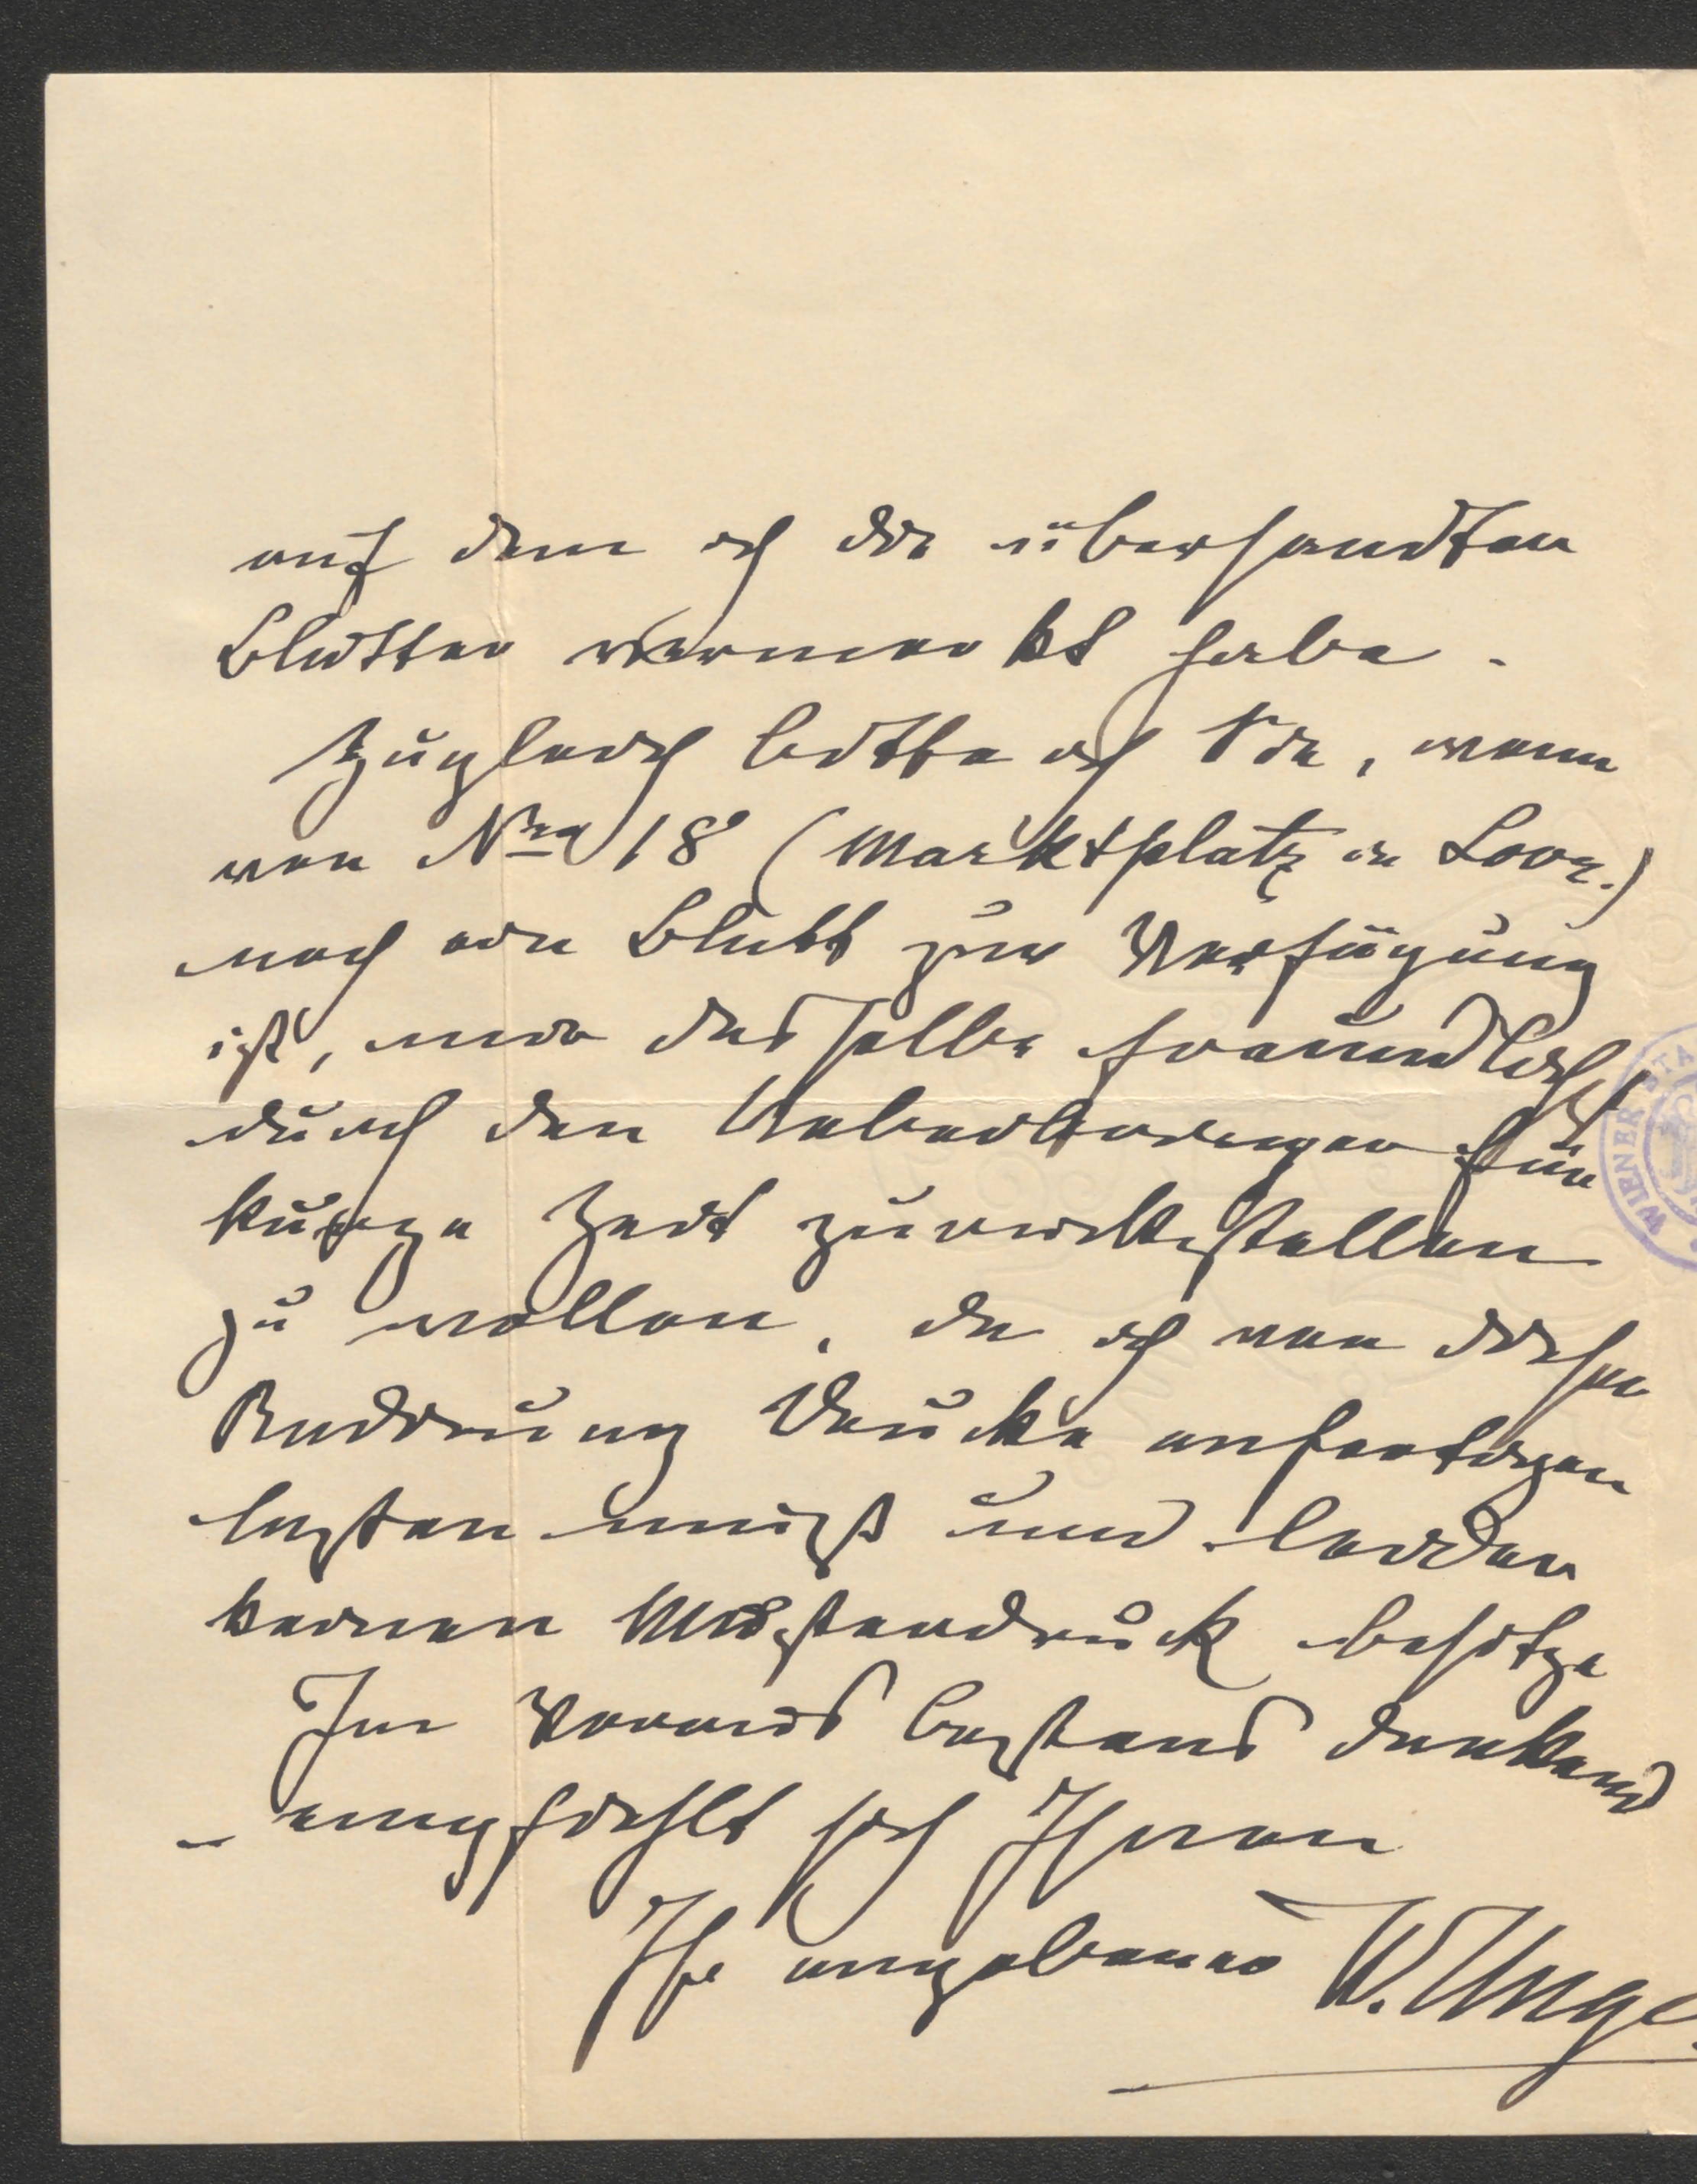 auf dem ich die übersandten
Blätter vermerkt habe.
Zugleich bitte ich Sie, wenn
von Nro 18 (Marktplatz in Loor.)
noch ein Blatt zur Verfügung
ist, mir dasselbe freundlichst
durch den Ueberbringer für
kurze Zeit zurückstellen
zu wollen, da ich von dieser
Radirung Drucke anfertigen
lassen muss und leider
keinen Musterdruck besitze
Im Voraus bestens dankend
empfiehlt sich Ihnen
Ihr ergebener W. Unge
WIENER STA